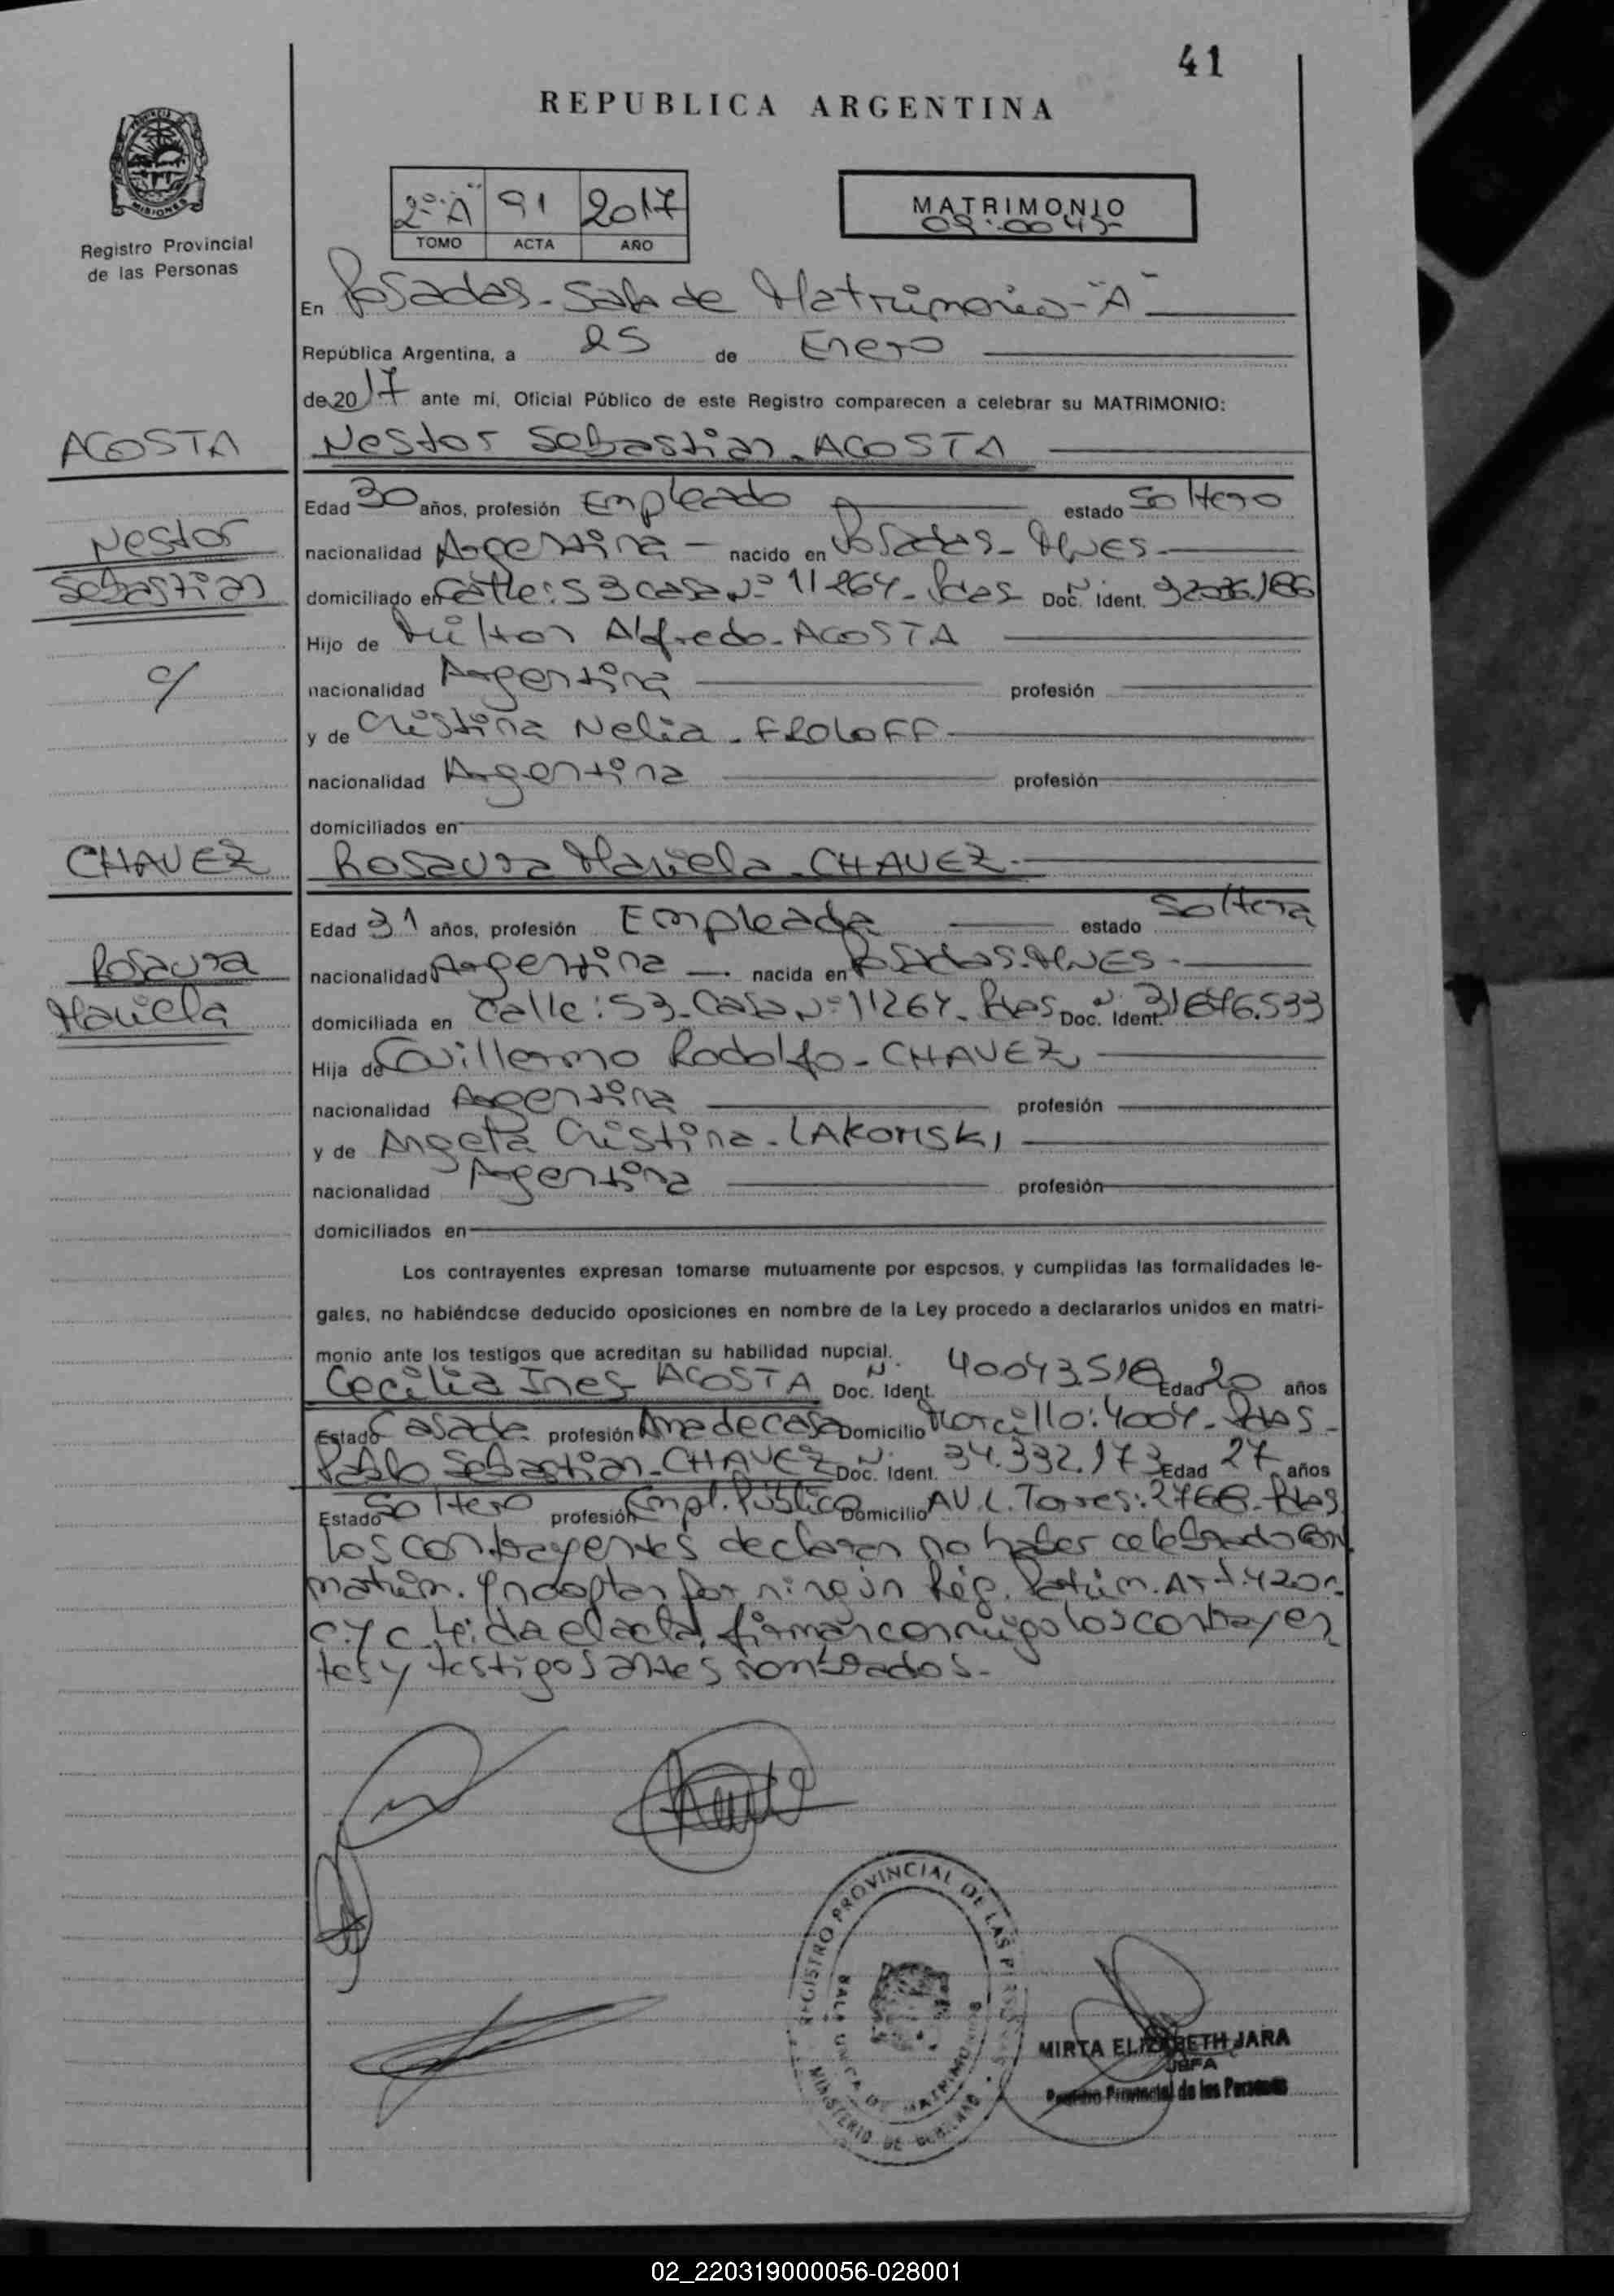 41
REPUBLICA ARGENTINA
MISIONES
Registro Provincial
de las Personas
2º "A" 91 2017
TOMO ACTA AÑO
MATRIMONIO
En Posadas - Sala de Matrimonio - "A"
República Argentina, a 25 de Enero
de 2017 ante mi, Oficial Público de este Registro comparecen a celebrar su MATRIMONIO:
ACOSTA
Nestor Sebastian
c/
Nestor Sebastian - ACOSTA
Edad 30 años, profesión Empleado estado Soltero
nacionalidad Argentina - nacido en Posadas - Mnes -
domiciliado en Calle: 53 casa Nº 11264 - Pdas Doc. Ident. Nº
Hijo de Milton Alfredo - ACOSTA
nacionalidad Argentina profesión
y de Cristina Nelia - FROLOFF
nacionalidad Argentina profesión
domiciliados en
CHAVEZ
Rosaura
Mariela
Rosaura Mariela - CHAVEZ -
Edad 31 años, profesión Empleada estado Soltera
nacionalidad Argentina - nacida en Posadas - Mnes -
domiciliada en Calle: 53 - Casa Nº 11267 - Pdas Doc. Ident. Nº 31 646.533
Hija de Guillermo Rodolfo - CHAVEZ
nacionalidad Argentina profesión
y de Angela Cristina - LAKOMSKI
nacionalidad Argentina profesión
domiciliados en
Los contrayentes expresan tomarse mutuamente por esposos, y cumplidas las formalidades le-
gales, no habiéndose deducido oposiciones en nombre de la Ley procedo a declararlos unidos en matri-
monio ante los testigos que acreditan su habilidad nupcial.
Cecilia Ines ACOSTA Doc. Ident. Nº 40043518 Edad 20 años
Estado Casada profesión Ama de casa Domicilio 4004 - Pdas -
Pablo Sebastian - CHAVEZ Doc. Ident. Nº 34.332.173 Edad 27 años
Estado Soltero profesión Empl. Público Domicilio AV. L. Torres: 2768 - Pdas
Los contrayentes declaran no haber celebrado con
matrim. y no optan por ningún Rég. Patrim. Art. 420 -
C. y C. Leída el acta, firman conmigo los contrayen
tes y testigos antes nombrados -
REGISTRO PROVINCIAL DE LAS PERSONAS
SALA UNICA DE MATRIMONIOS
MINISTERIO DE GOBIERNO
MIRTA ELIZABETH JARA
JEFA
Registro Provincial de las Personas
02_220319000056-028001